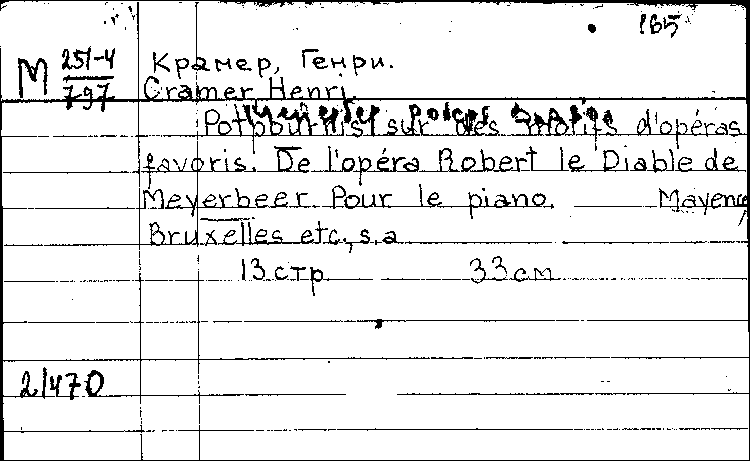 165
М 251-4/797
Крамер, Генри.
Cramer Henri.
Potpourris sur des motifs d'opéras
favoris. De l'opéra Robert le Diable de
Meyerbeer Pour le piano. Mayence,
Bruxelles etc., s.a
13 стр 33 см
21470